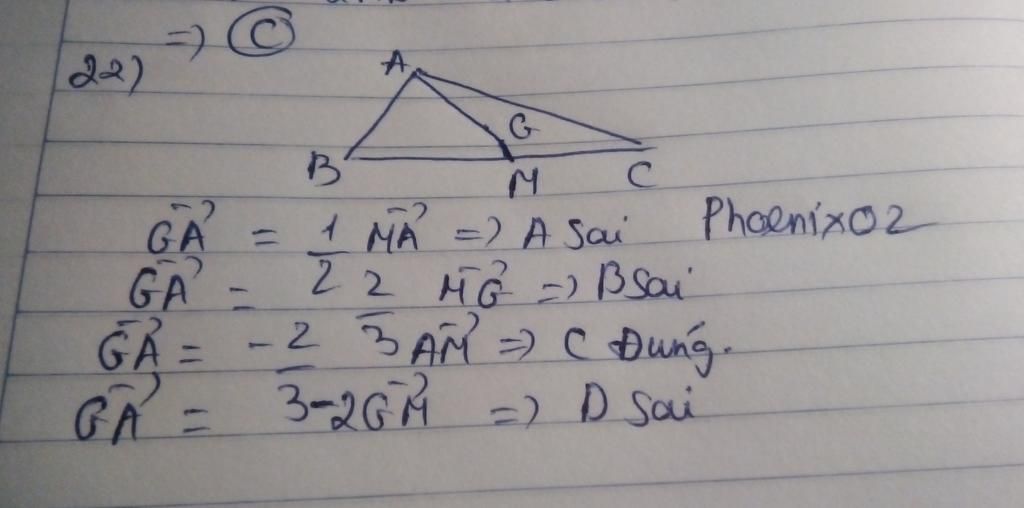 => C
22)
A
G
B M C
GA = 1/2 MA => A sai PhoenixO2
GA = 2/3 MG => B sai
GA = -2/3 AM => C Đúng.
GA = -2GM => D sai